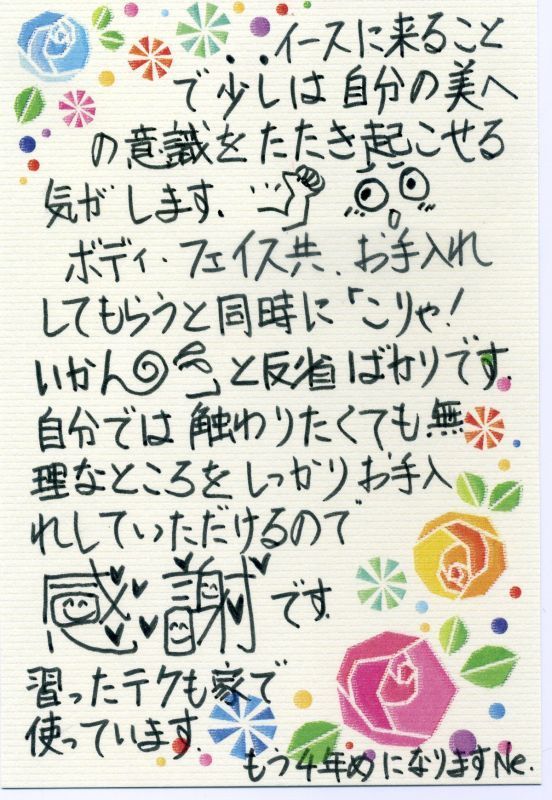 ・・イースに来ること
で少しは自分の美へ
の意識をたたき起こせる
気がします。
ボディ・フェイス共、お手入れ
してもらうと同時に「こりゃ!
いかん」と反省ばかりです。
自分では触わりたくても無
理なところをしっかりお手入
れしていただけるので
感謝です。
習ったテクも家で
使っています。
もう4年めになりますNe.